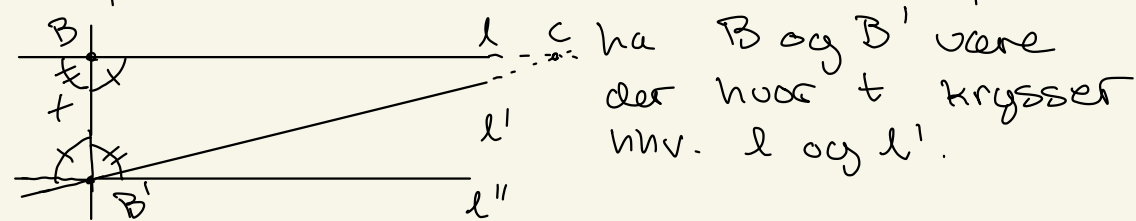 B l C ha B og B' være
t der hvor t krysser
l' hhv. l og l'.
B' l''